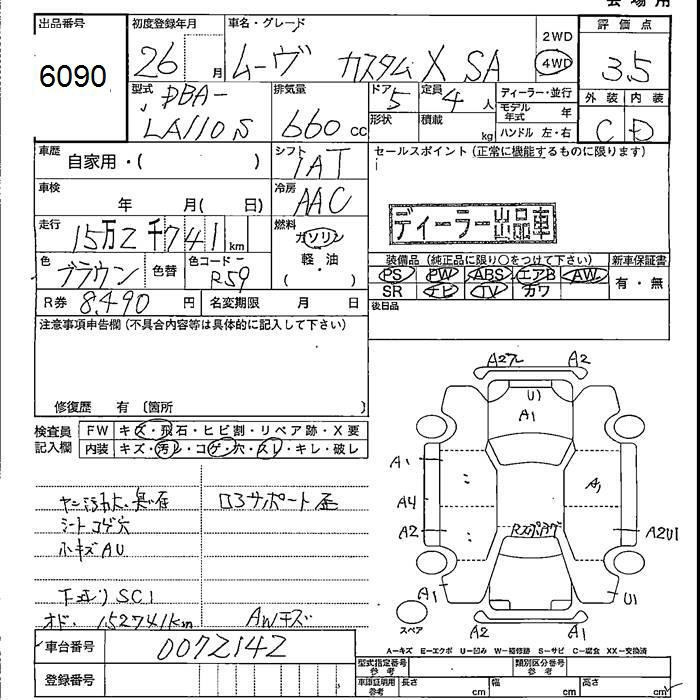 会場用
出品番号 6090
初度登録年月 26 月
車名・グレード ムーヴ カスタム X SA
2WD
4WD
評価点 3.5
外装 C 内装 D
型式 DBA-
LA110S
排気量 660 cc
ドア 5
形状
定員 4 人
積載 kg
ディーラー・並行
モデル年式 年
ハンドル 左・右
車歴 自家用・( )
シフト IAT
セールスポイント (正常に機能するものに限ります)
車検 年 月( 日)
冷房 AAC
ディーラー出品車
走行 15万2千741 km
燃料 ガソリン
軽・油
( )
色 ブラウン 色替
色コード R59
装備品 (純正品に限り○をつけて下さい)
新車保証書
PS PW ABS エアB AW
SR ナビ TV カワ
有・無
R券 8,490 円 名変期限 月 日
後日品
注意事項申告欄 (不具合内容等は具体的に記入して下さい)
修復歴 有 〔箇所 〕
検査員記入欄
FW キズ・飛石・ヒビ割・リペア跡・X要
内装 キズ・汚レ・コゲ・穴・スレ・キレ・破レ
シートコゲ穴
小キズAU
下廻りSC1
オド. 152741km
ロアサポート歪
AWキズ
A2 A2
U1
A1
A1
A1
A4
A2
A2U1
A1
U1
スペア
A2 A1
A-キズ E-エクボ U-凹み W-補修跡 S-サビ C-腐食 XX-交換済
車台番号 0072142
登録番号
型式指定番号 参考
類別区分番号 参考
車庫証明用 参考 長さ cm 幅 cm 高さ cm